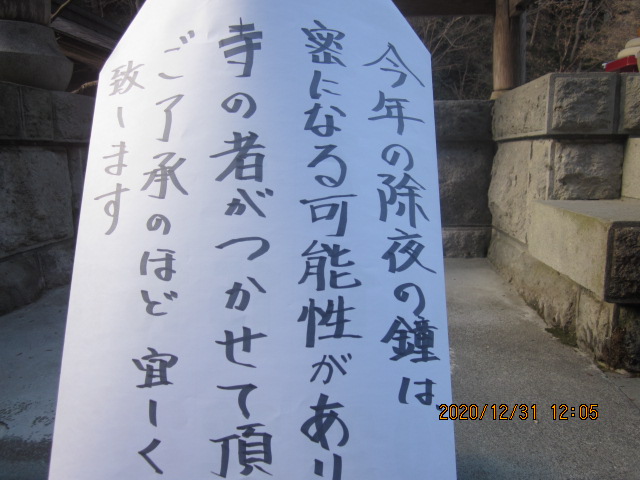 今年の除夜の鐘は、
密になる可能性があり
寺の者がつかせて頂
ご了承のほど 宜しく
致します
2020/12/31 12:05